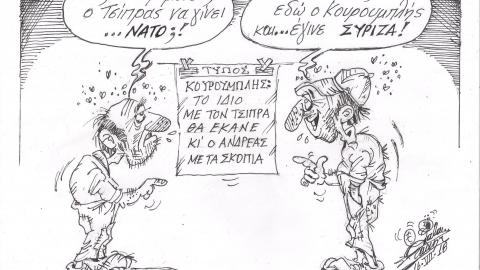 ο Τσίπρας να γίνει
...ΝΑΤΟ;!
εδώ ο Κουρουμπλής
και...έγινε ΣΥΡΙΖΑ!
ΤΥΠΟΣ
ΚΟΥΡΟΥΜΠΛΗΣ:
ΤΟ ΙΔΙΟ
ΜΕ ΤΟΝ ΤΣΙΠΡΑ
ΘΑ ΕΚΑΝΕ
ΚΙ' Ο ΑΝΔΡΕΑΣ
ΜΕ ΤΑ ΣΚΟΠΙΑ